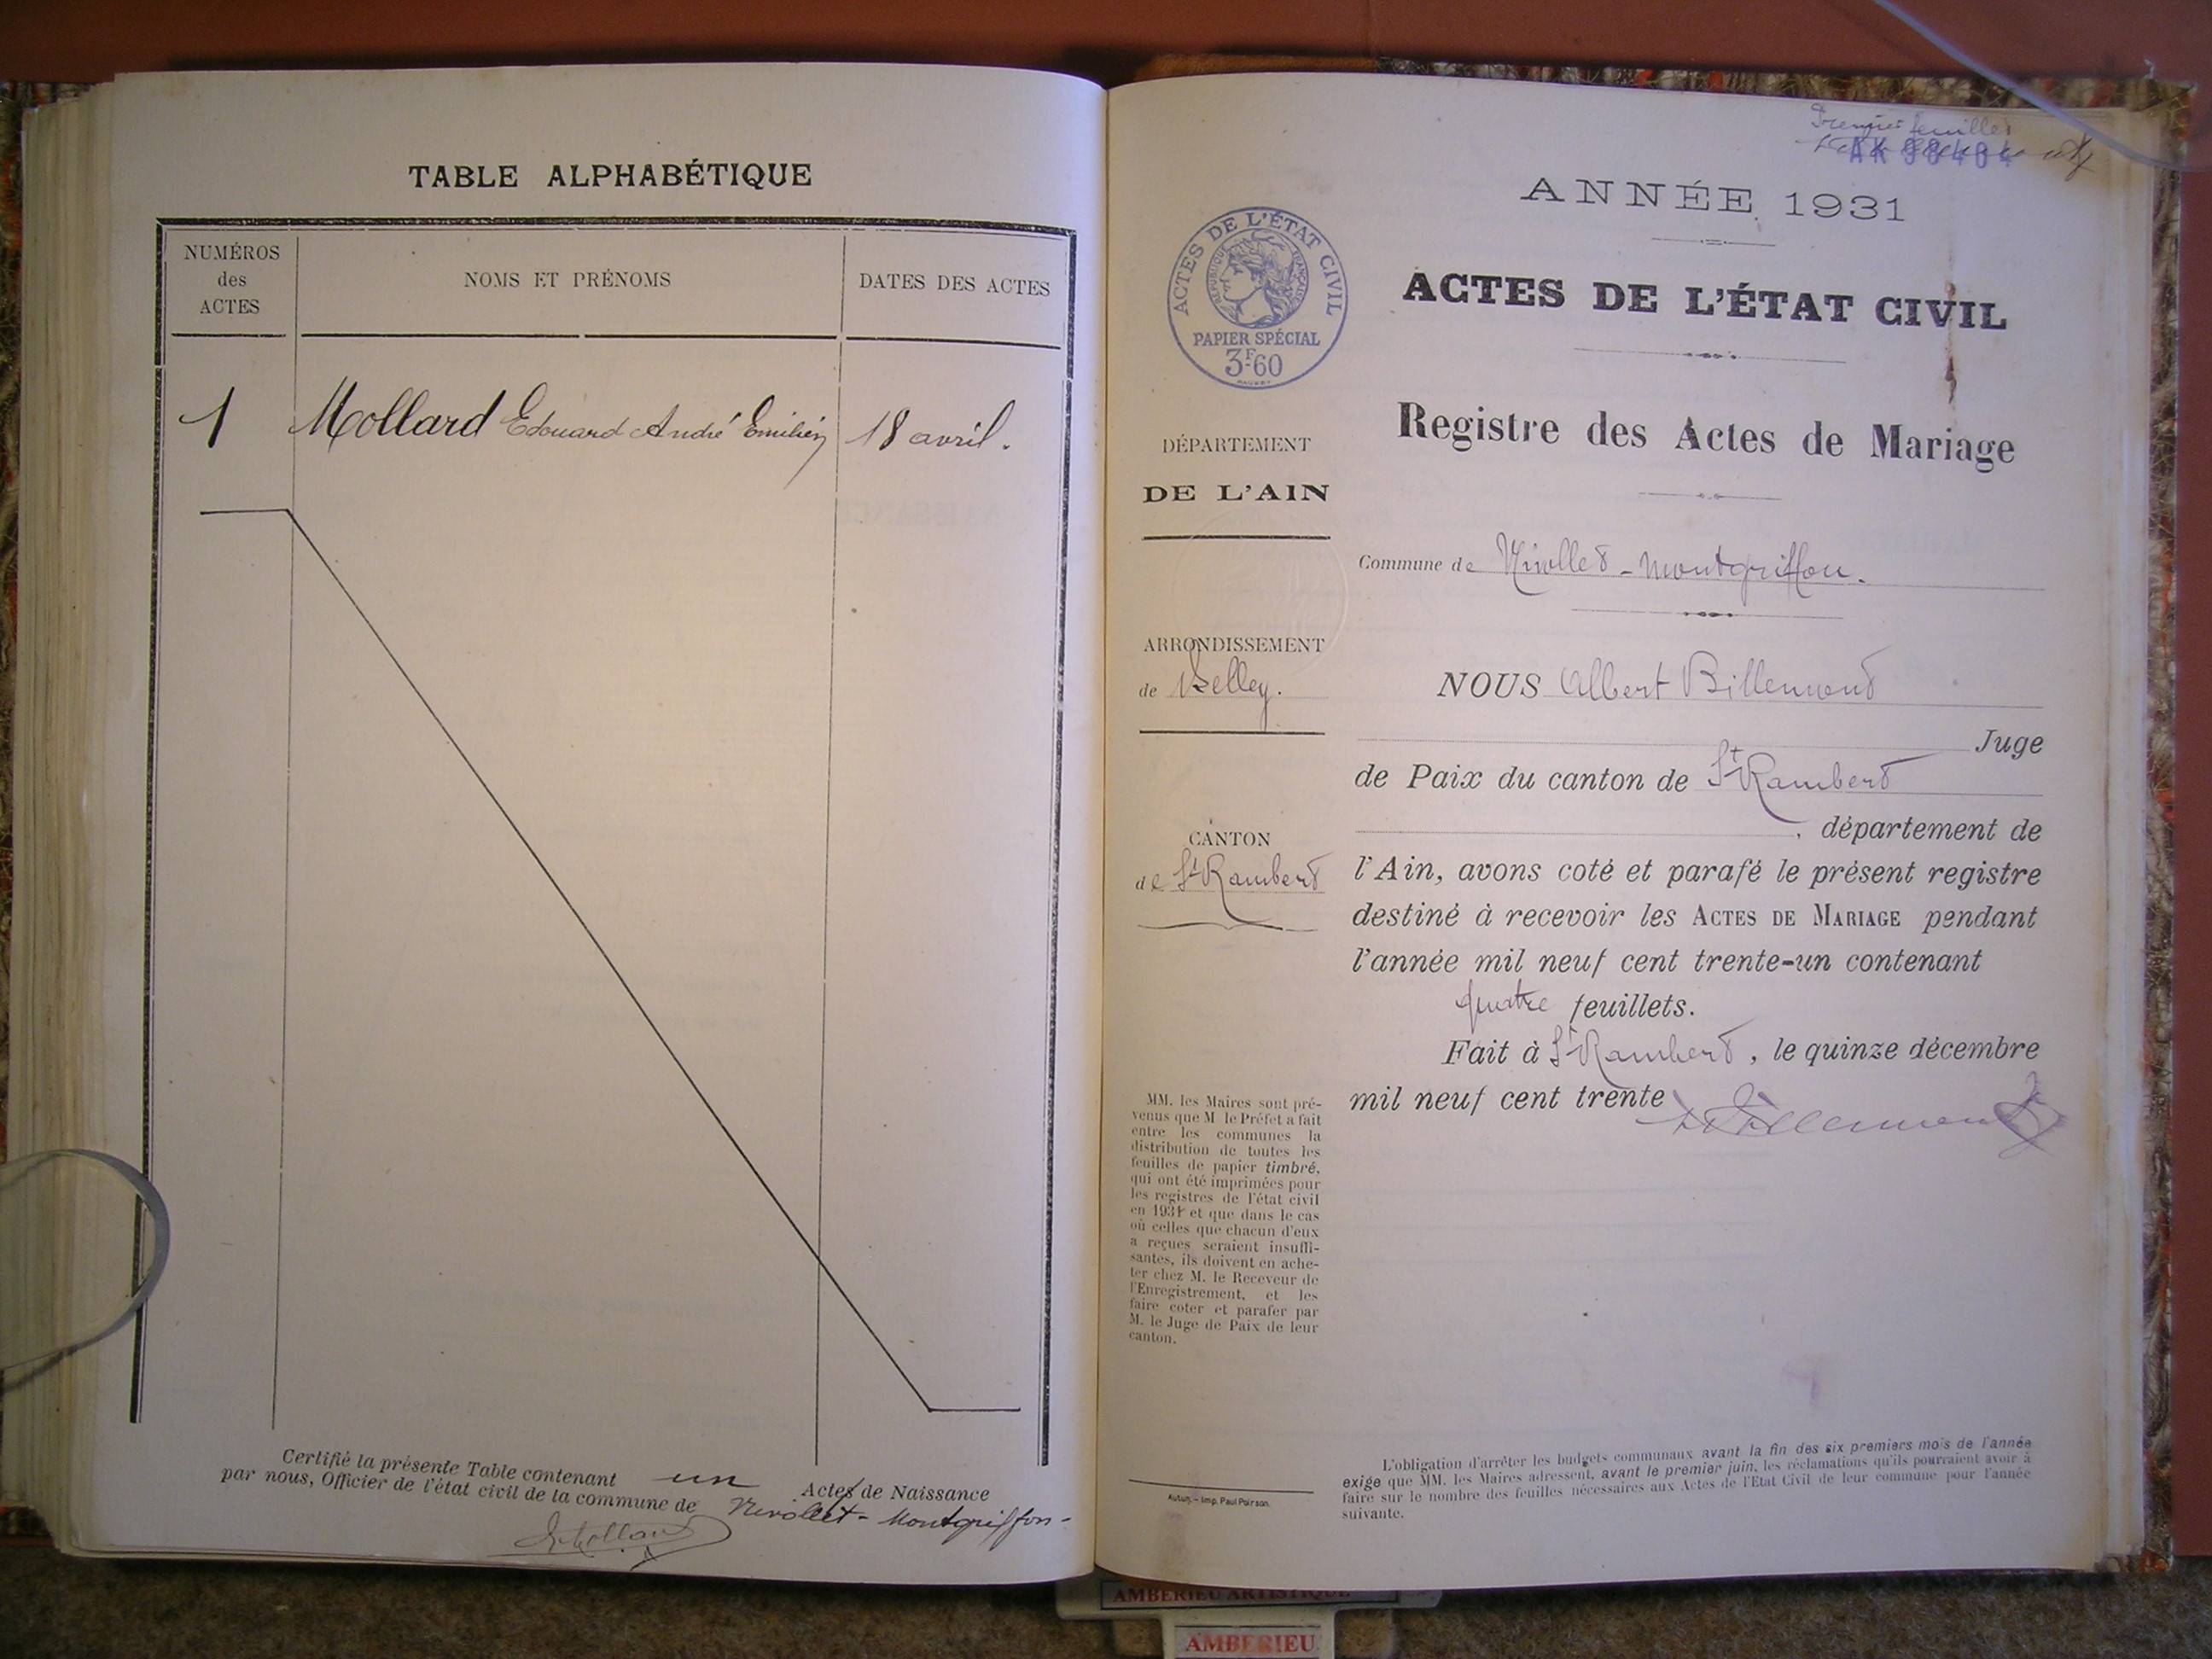 TABLE ALPHABÉTIQUE
NUMÉROS
des
ACTES
NOMS ET PRÉNOMS
DATES DES ACTES
1 Mollard Edouard André Emilien 18 avril.
Certifié la présente Table contenant un Actes de Naissance
par nous, Officier de l'état civil de la commune de Nivollet-Montgriffon-
Mollard
Premier feuillet
AK 98404
ANNÉE 1931
ACTES DE L'ÉTAT CIVIL
RÉPUBLIQUE FRANÇAISE
PAPIER SPÉCIAL
3F60
ACTES DE L'ÉTAT CIVIL
Registre des Actes de Mariage
DÉPARTEMENT
DE L'AIN
Commune de Nivollet-Montgriffon.
ARRONDISSEMENT
de Belley.
CANTON
de St Rambert
NOUS Albert Billemond
Juge
de Paix du canton de St Rambert
, département de
l'Ain, avons coté et parafé le présent registre
destiné à recevoir les ACTES DE MARIAGE pendant
l'année mil neuf cent trente-un contenant
quatre feuillets.
Fait à St Rambert, le quinze décembre
mil neuf cent trente
Billemond
MM. les Maires sont pré-
venus que M le Préfet a fait
entre les communes la
distribution de toutes les
feuilles de papier timbré,
qui ont été imprimées pour
les registres de l'état civil
en 1931 et que dans le cas
où celles que chacun d'eux
a reçues seraient insuffi-
santes, ils doivent en ache-
ter chez M. le Receveur de
l'Enregistrement, et les
faire coter et parafer par
M. le Juge de Paix de leur
canton.
Autun. - Imp. Paul Poirson
L'obligation d'arrêter les budgets communaux avant la fin des six premiers mois de l'année
exige que MM. les Maires adressent, avant le premier juin, les réclamations qu'ils pourraient avoir à
faire sur le nombre des feuilles nécessaires aux Actes de l'Etat Civil de leur commune pour l'année
suivante.
AMBERIEU ARTISTIQUE
AMBERIEU